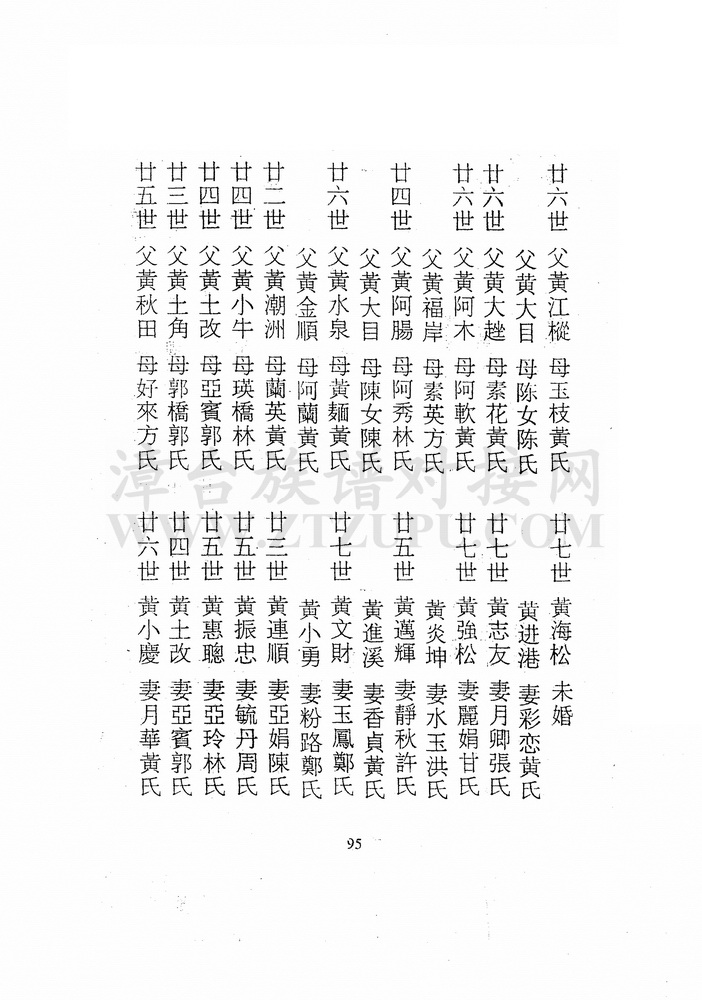 廿六世 父黃江樅 母玉枝黃氏 廿七世 黃海松 未婚
父黄大目 母陈女陈氏 黃进港 妻彩恋黃氏
廿六世 父黃大趖 母素花黃氏 廿七世 黃志友 妻月卿張氏
廿六世 父黃阿木 母阿軟黃氏 廿七世 黃強松 妻麗娟甘氏
父黃福岸 母素英方氏 黃炎坤 妻水玉洪氏
廿四世 父黃阿腸 母阿秀林氏 廿五世 黃邁輝 妻靜秋許氏
父黃大目 母陳女陳氏 黃進溪 妻香貞黃氏
廿六世 父黃水泉 母黃麵黃氏 廿七世 黃文財 妻玉鳳鄭氏
父黃金順 母阿蘭黃氏 黃小勇 妻粉路鄭氏
廿二世 父黃潮洲 母蘭英黃氏 廿三世 黃連順 妻亞娟陳氏
廿四世 父黃小牛 母瑛橋林氏 廿五世 黃振忠 妻毓丹周氏
廿四世 父黃土改 母亞賓郭氏 廿五世 黃惠聰 妻亞玲林氏
廿三世 父黃土角 母郭橋郭氏 廿四世 黃土改 妻亞賓郭氏
廿五世 父黃秋田 母好來方氏 廿六世 黃小慶 妻月華黃氏
漳台族谱对接网
WWW.ZTZUPU.COM
95